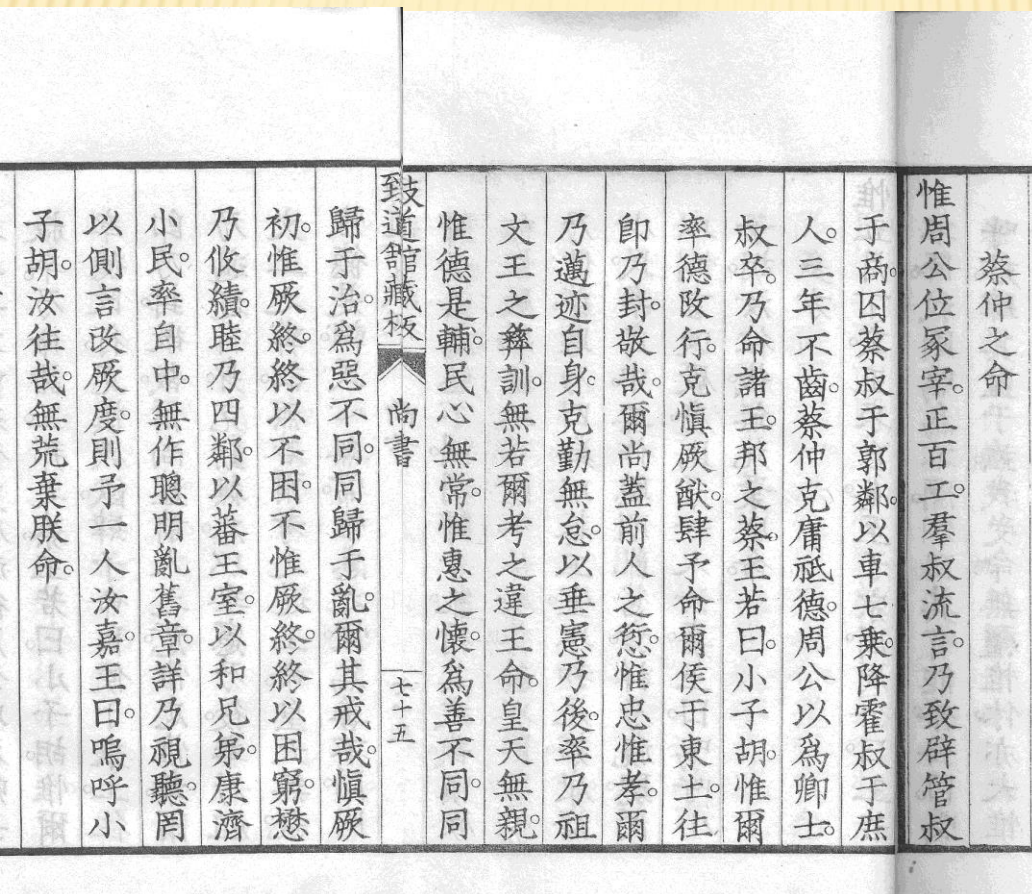 蔡仲之命
惟周公位冢宰。正百工。羣叔流言。乃致辟管叔
于商。囚蔡叔于郭鄰。以車七乗。降霍叔于庶
人。三年不齒。蔡仲克庸祗德。周公以爲卿士。
叔卒。乃命諸王。邦之蔡。王若曰。小子胡。惟爾
率德改行。克愼厥猷。肆予命爾侯于東土。往
卽乃封。敬哉。爾尚蓋前人之愆。惟忠惟孝。爾
乃邁迹自身。克勤無怠。以垂憲乃後。率乃祖
文王之彝訓。無若爾考之違王命。皇天無親。
惟德是輔。民心無常。惟惠之懷。爲善不同。同
致道館藏板 尚書 七十五
歸于治。爲惡不同。同歸于亂。爾其戒哉。愼厥
初。惟厥終。終以不困。不惟厥終。終以困窮。懋
乃攸績。睦乃四鄰。以蕃王室。以和兄弟。康濟
小民。率自中。無作聰明亂舊章。詳乃視聽。罔
以側言改厥度。則予一人汝嘉。王曰。嗚呼小
子胡。汝往哉。無荒棄朕命。